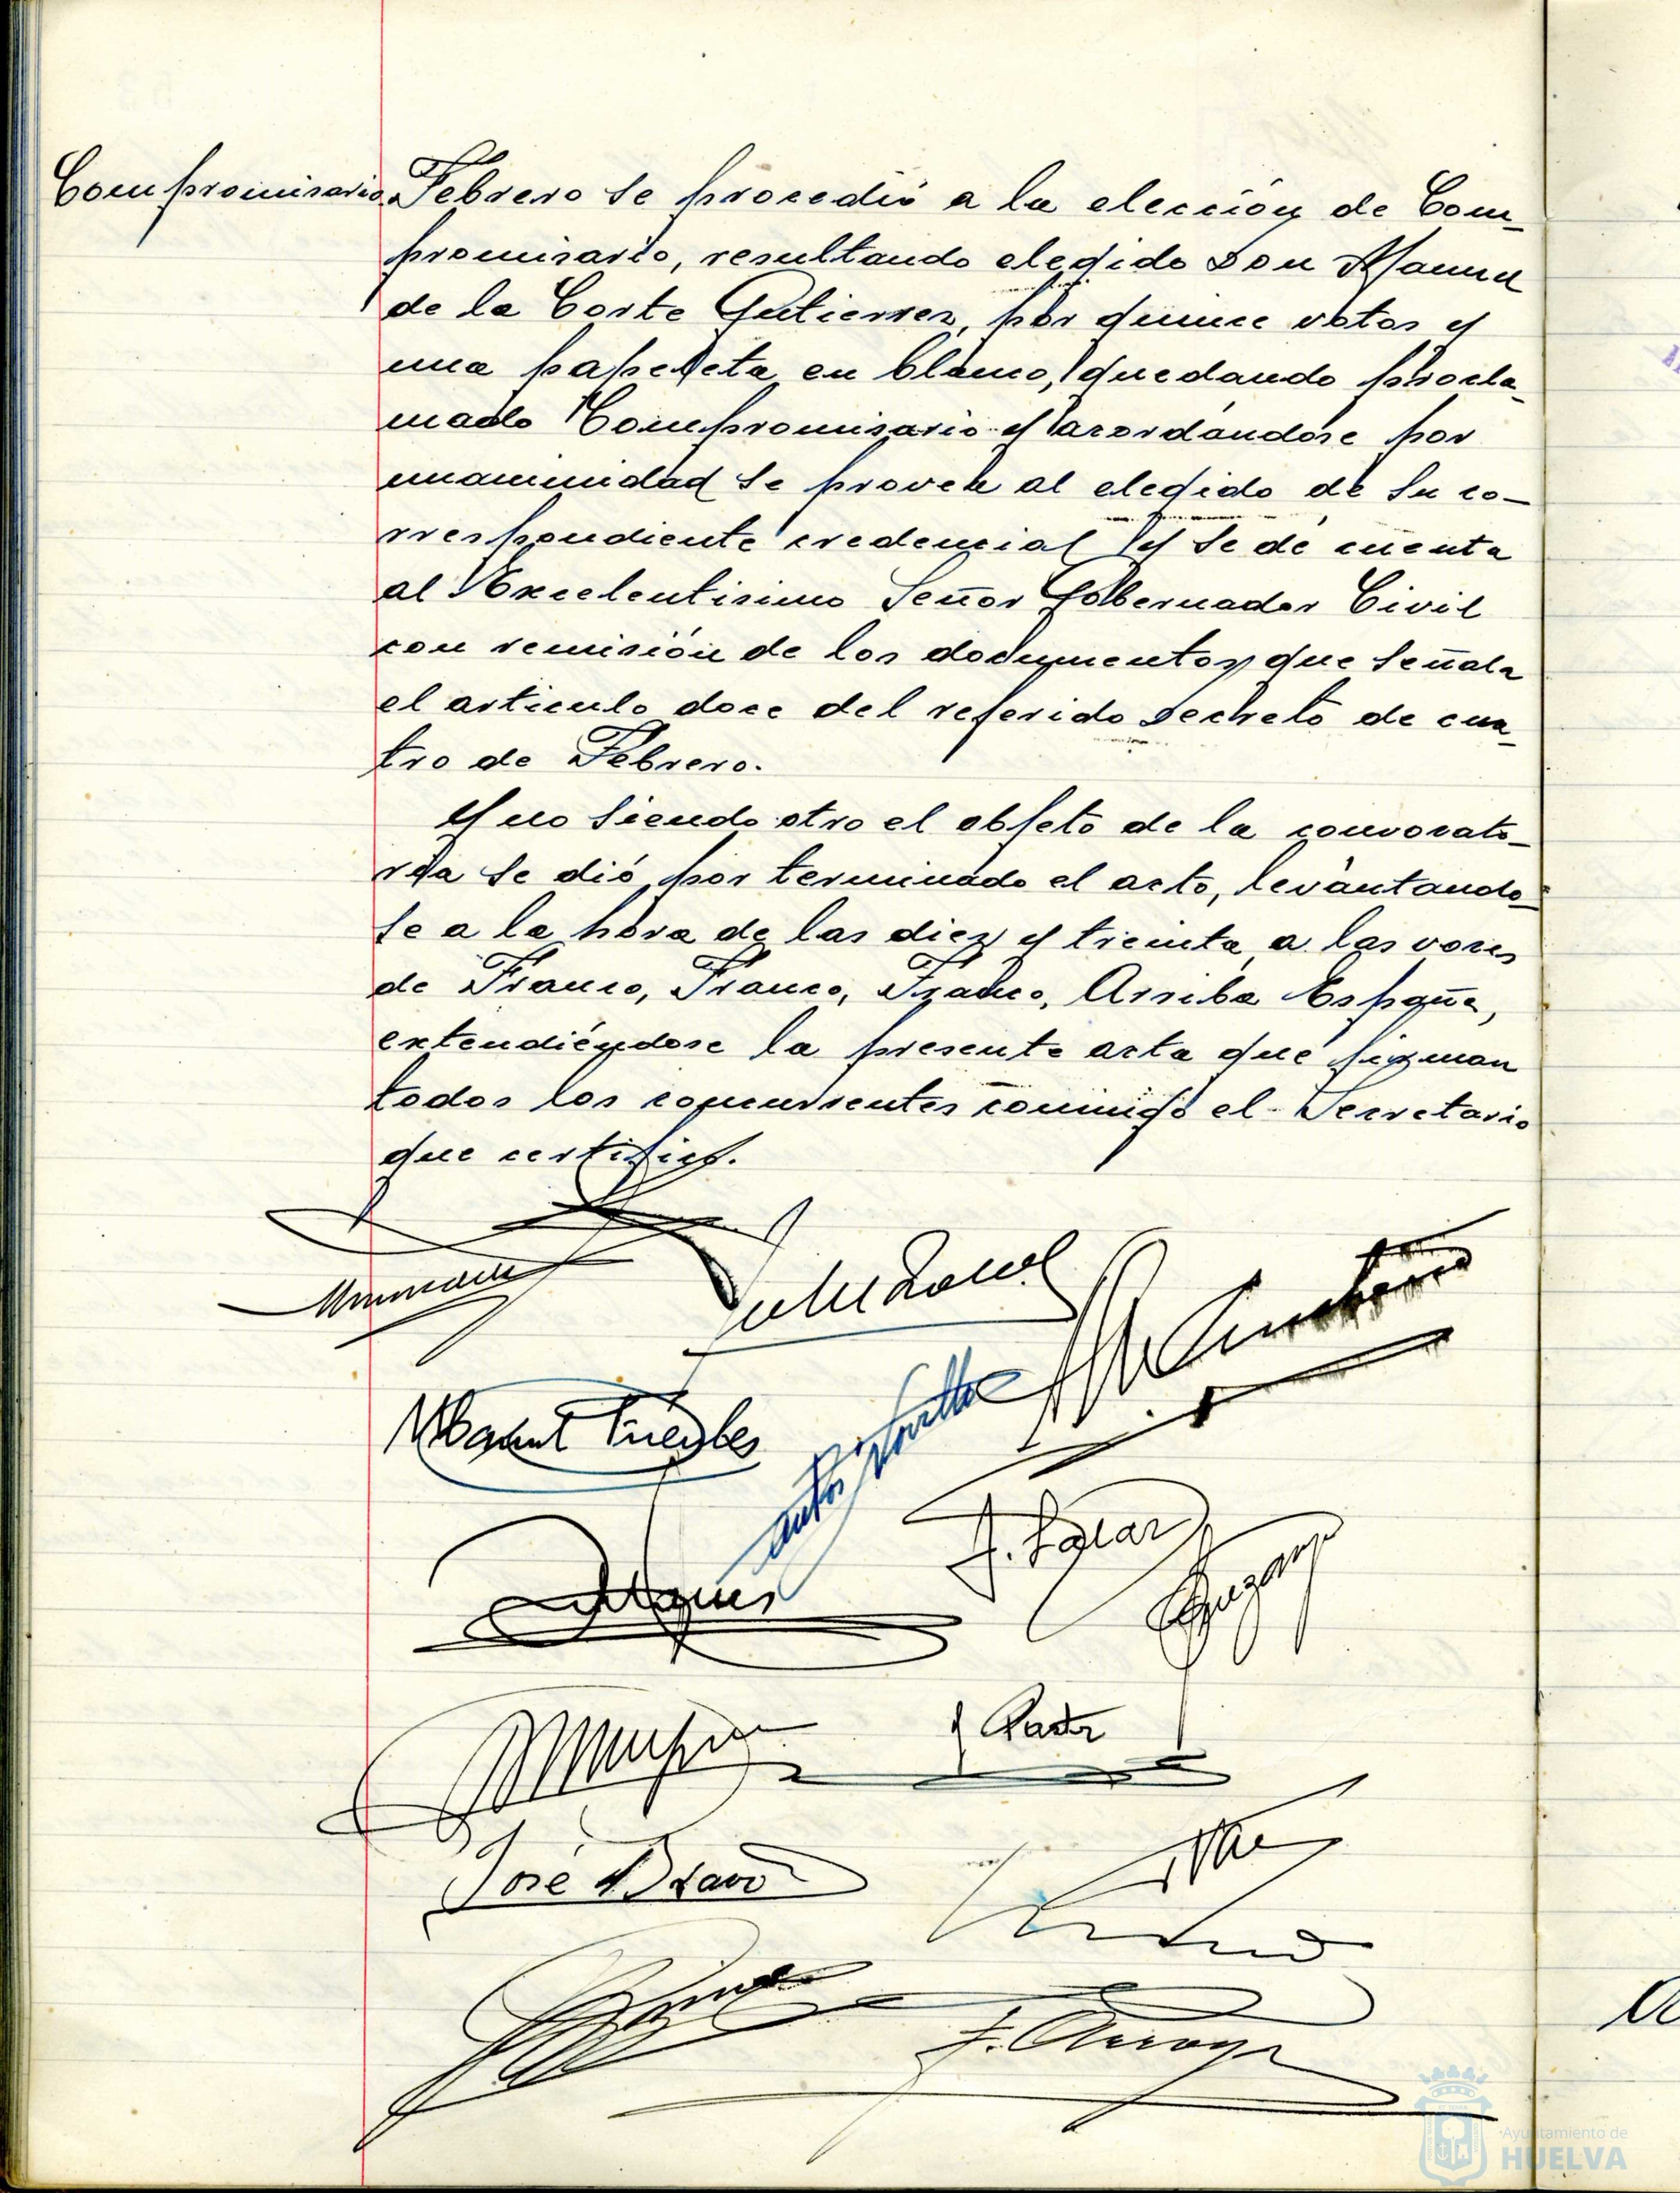 Compromisario
Febrero se procedió a la elección de Com-
promisario, resultando elegido Don Manuel
de la Corte Gutierrez, por quince votos y
una papeleta en blanco, quedando procla-
mado Compromisario y acordándose por
unanimidad se provea al elegido de su co-
rrespondiente credencial y se dé cuenta
al Excelentisimo Señor Gobernador Civil
con remisión de los documentos que señala
el articulo doce del referido Decreto de cua-
tro de Febrero.
Y no siendo otro el objeto de la convocato-
ria se dió por terminado el acto, levantando-
se a la hora de las diez y treinta a las voces
de Franco, Franco, Franco, Arriba España,
extendiéndose la presente acta que firman
todos los concurrentes conmigo el Secretario
que certifico.
J. Pastor
José Bravo
Ayuntamiento de
HUELVA